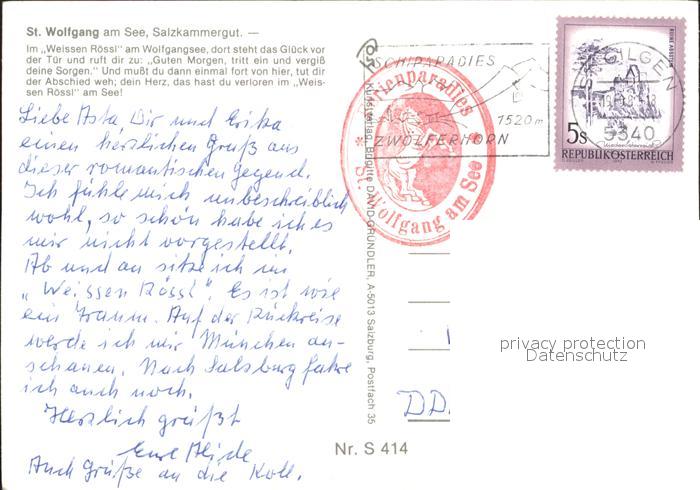 St. Wolfgang am See, Salzkammergut. —
Im „Weissen Rössl" am Wolfgangsee, dort steht das Glück vor
der Tür und ruft dir zu: „Guten Morgen, tritt ein und vergiß
deine Sorgen." Und mußt du dann einmal fort von hier, tut dir
der Abschied weh; dein Herz, das hast du verloren im „Weis-
sen Rössl" am See!
Liebe Asta Dir und Erika
einen herzlichen Gruß aus
dieser romantischen Gegend.
Ich fühle mich unbeschreiblich
wohl, so schön habe ich es
mir nicht vorgestellt.
Ab und an sitze ich im
„Weissen Rössl". Es ist wie
ein Traum. Auf der Rückreise
werde ich mir München an-
schauen. Nach Salzburg fahre
ich auch noch.
Herzlich grüßt
Eure
Auch Grüße an die Koll.
Kunstverlag, Brigitte DAVID-GRÜNDLER, A-5013 Salzburg, Postfach 35
Nr. S 414
SCHIPARADIES
1520 m
ZWÖLFERHORN
Ferienparadies
St. Wolfgang am See
ST. GILGEN
5340
5 S
REPUBLIK ÖSTERREICH
DD.
privacy protection
Datenschutz